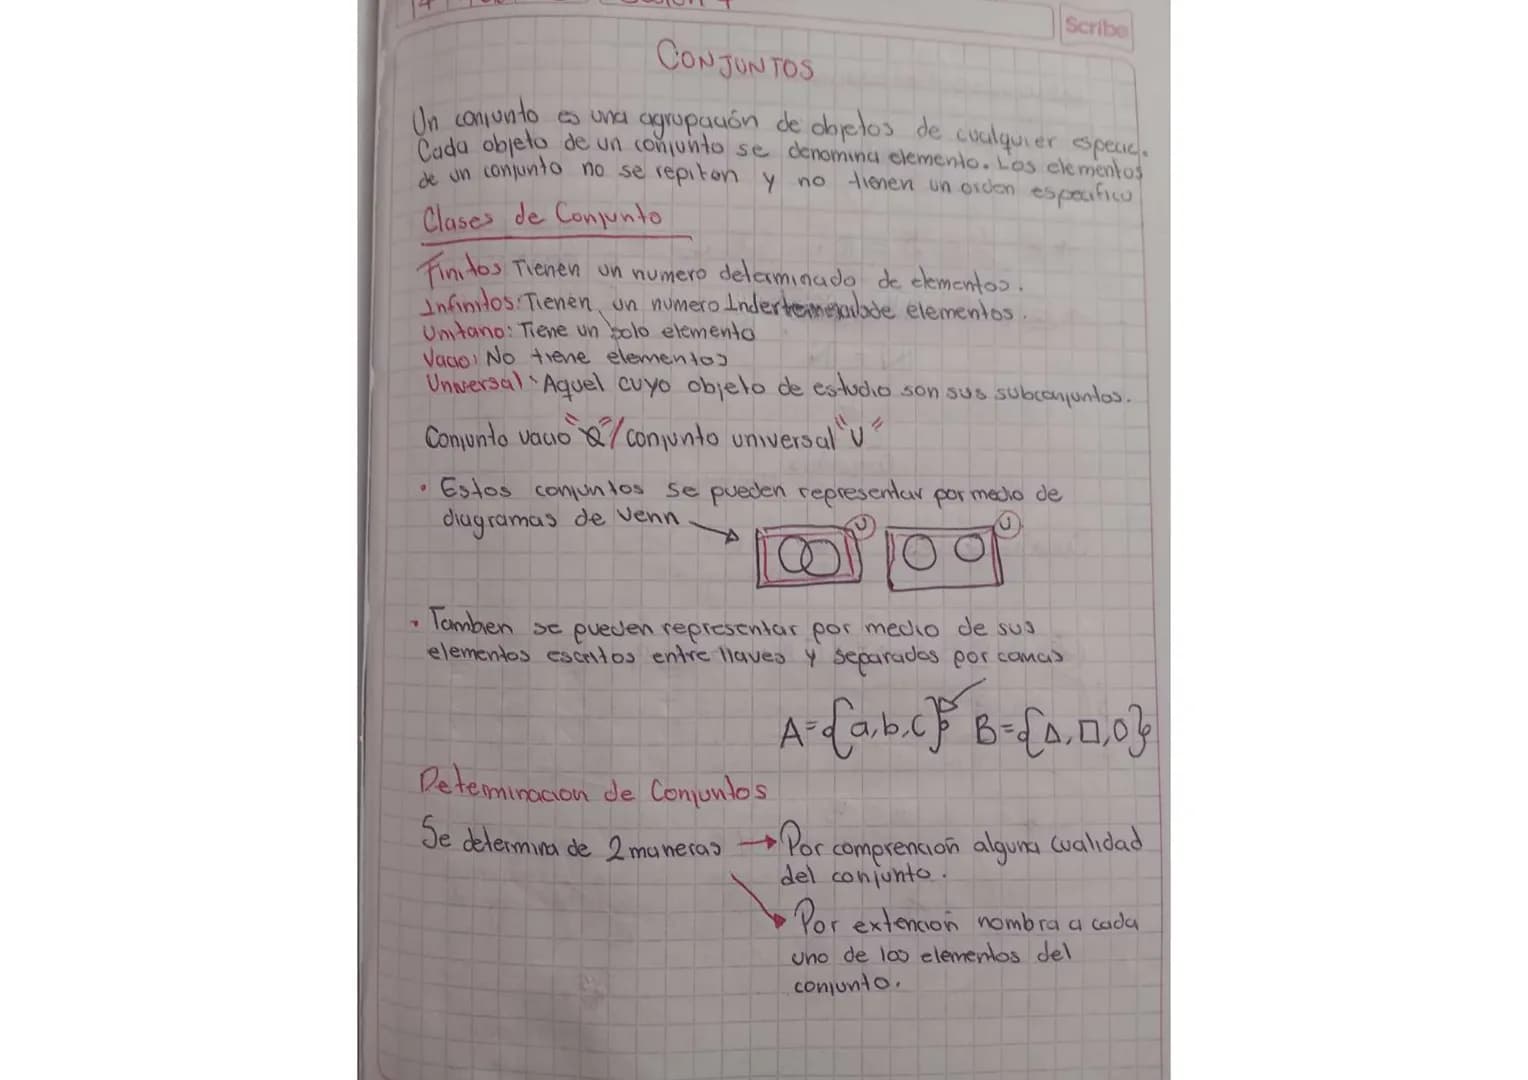 Scribe
CONJUNTOS
Un conjunto es una agrupación de objetos de cualquier especie.
Cada objeto de un conjunto se denomina elemento. Los elementos
de un conjunto no se repiten y no tienen un orden especifico
Clases de Conjunto
Finitos Tienen un numero determinado de elementos.
Infinitos: Tienen un numero de elementos.
Unitario: Tiene un solo elemento
Vacio: No tiene elementos
Universal: Aquel cuyo objeto de estudio son sus subconjuntos.
Conjunto vacio "Ø"/conjunto universal "U"
• Estos conjuntos se pueden representar por medio de
diagramas de Venn
U U
• Tambien se pueden representar por medio de sus
elementos escritos entre llaves y separados por comas
A={a,b,c} B={△,□,○}
Determinacion de Conjuntos
Se determina de 2 maneras → Por comprención alguna cualidad
del conjunto.
Por extención nombra a cada
uno de los elementos del
conjunto.